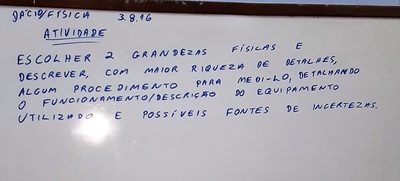 DÁCIO/FÍSICA 3.8.16
ATIVIDADE
ESCOLHER 2 GRANDEZAS FÍSICAS E
DESCREVER, COM MAIOR RIQUEZA DE DETALHES,
ALGUM PROCEDIMENTO PARA MEDI-LO, DETALHANDO
O FUNCIONAMENTO/DESCRIÇÃO DO EQUIPAMENTO
UTILIZADO E POSSÍVEIS FONTES DE INCERTEZAS.